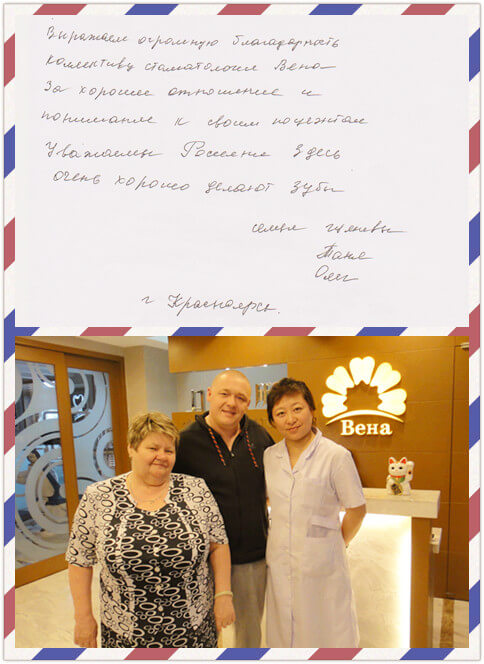 Выражаем огромную благодарность
коллективу стоматологии Вена
За хорошее отношение и
понимание к своим пациентам
Уважаемы Россияне здесь
очень хорошо делают зубы
семья
Таня
Олег
г Красноярск.
Вена